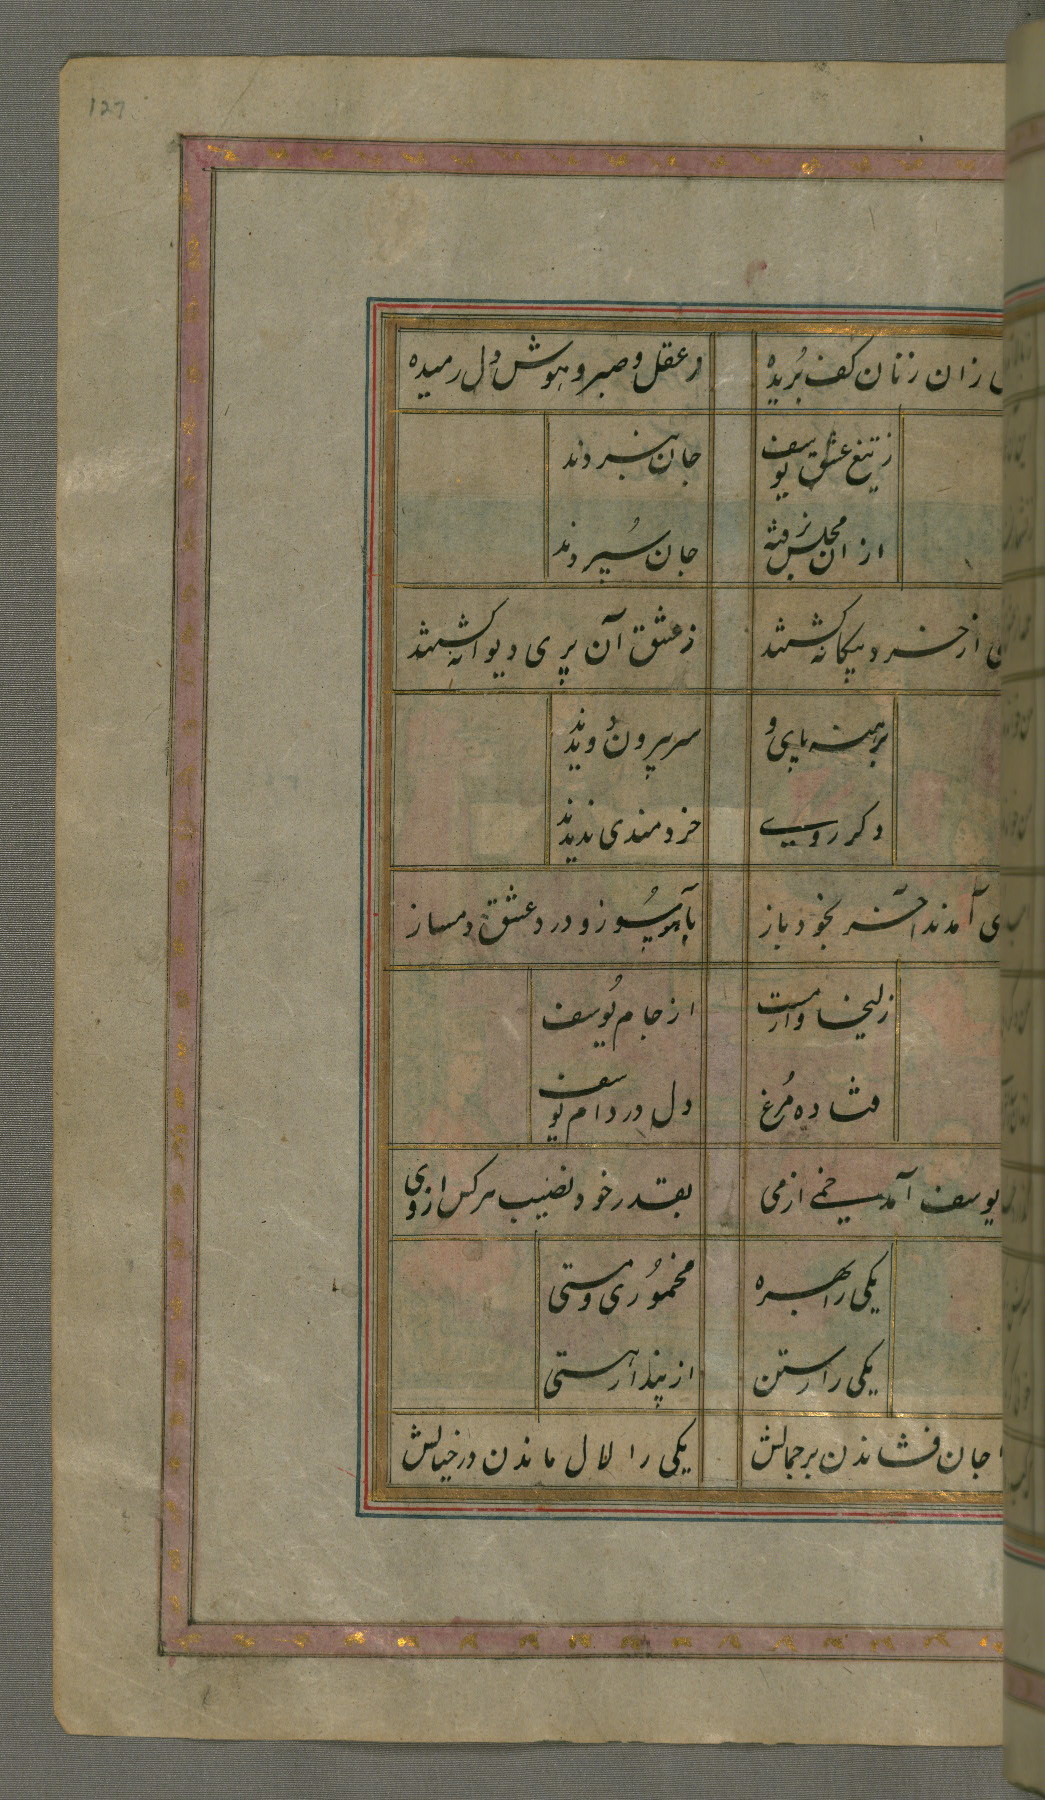 127
زان زنان کف بُریده ز عقل و صبر و هوش و دل رمیده
ز تیغ عشق یوسف جان نبردند
از ان مجلس نرفته جان سُپردند
از خرد بیگانه گشتند ز عشق آن پری دیوانه گشتند
برهنه پای و سر بیرون دویدند
دگر روی خردمندی ندیدند
آمدند آخر بخود باز بآه و سُوز و درد عشق دمساز
زلیخا وار مست از جام یُوسف
فتاده مُرغ دل در دام یوسف
یوسف آمد خمی از می بقدر خود نصیب هر کس از وی
یکی را بهره مخمُوری و مستی
یکی را رستن از پندار هستی
جان فشاندن بر جمالش یکی را لال ماندن در خیالش